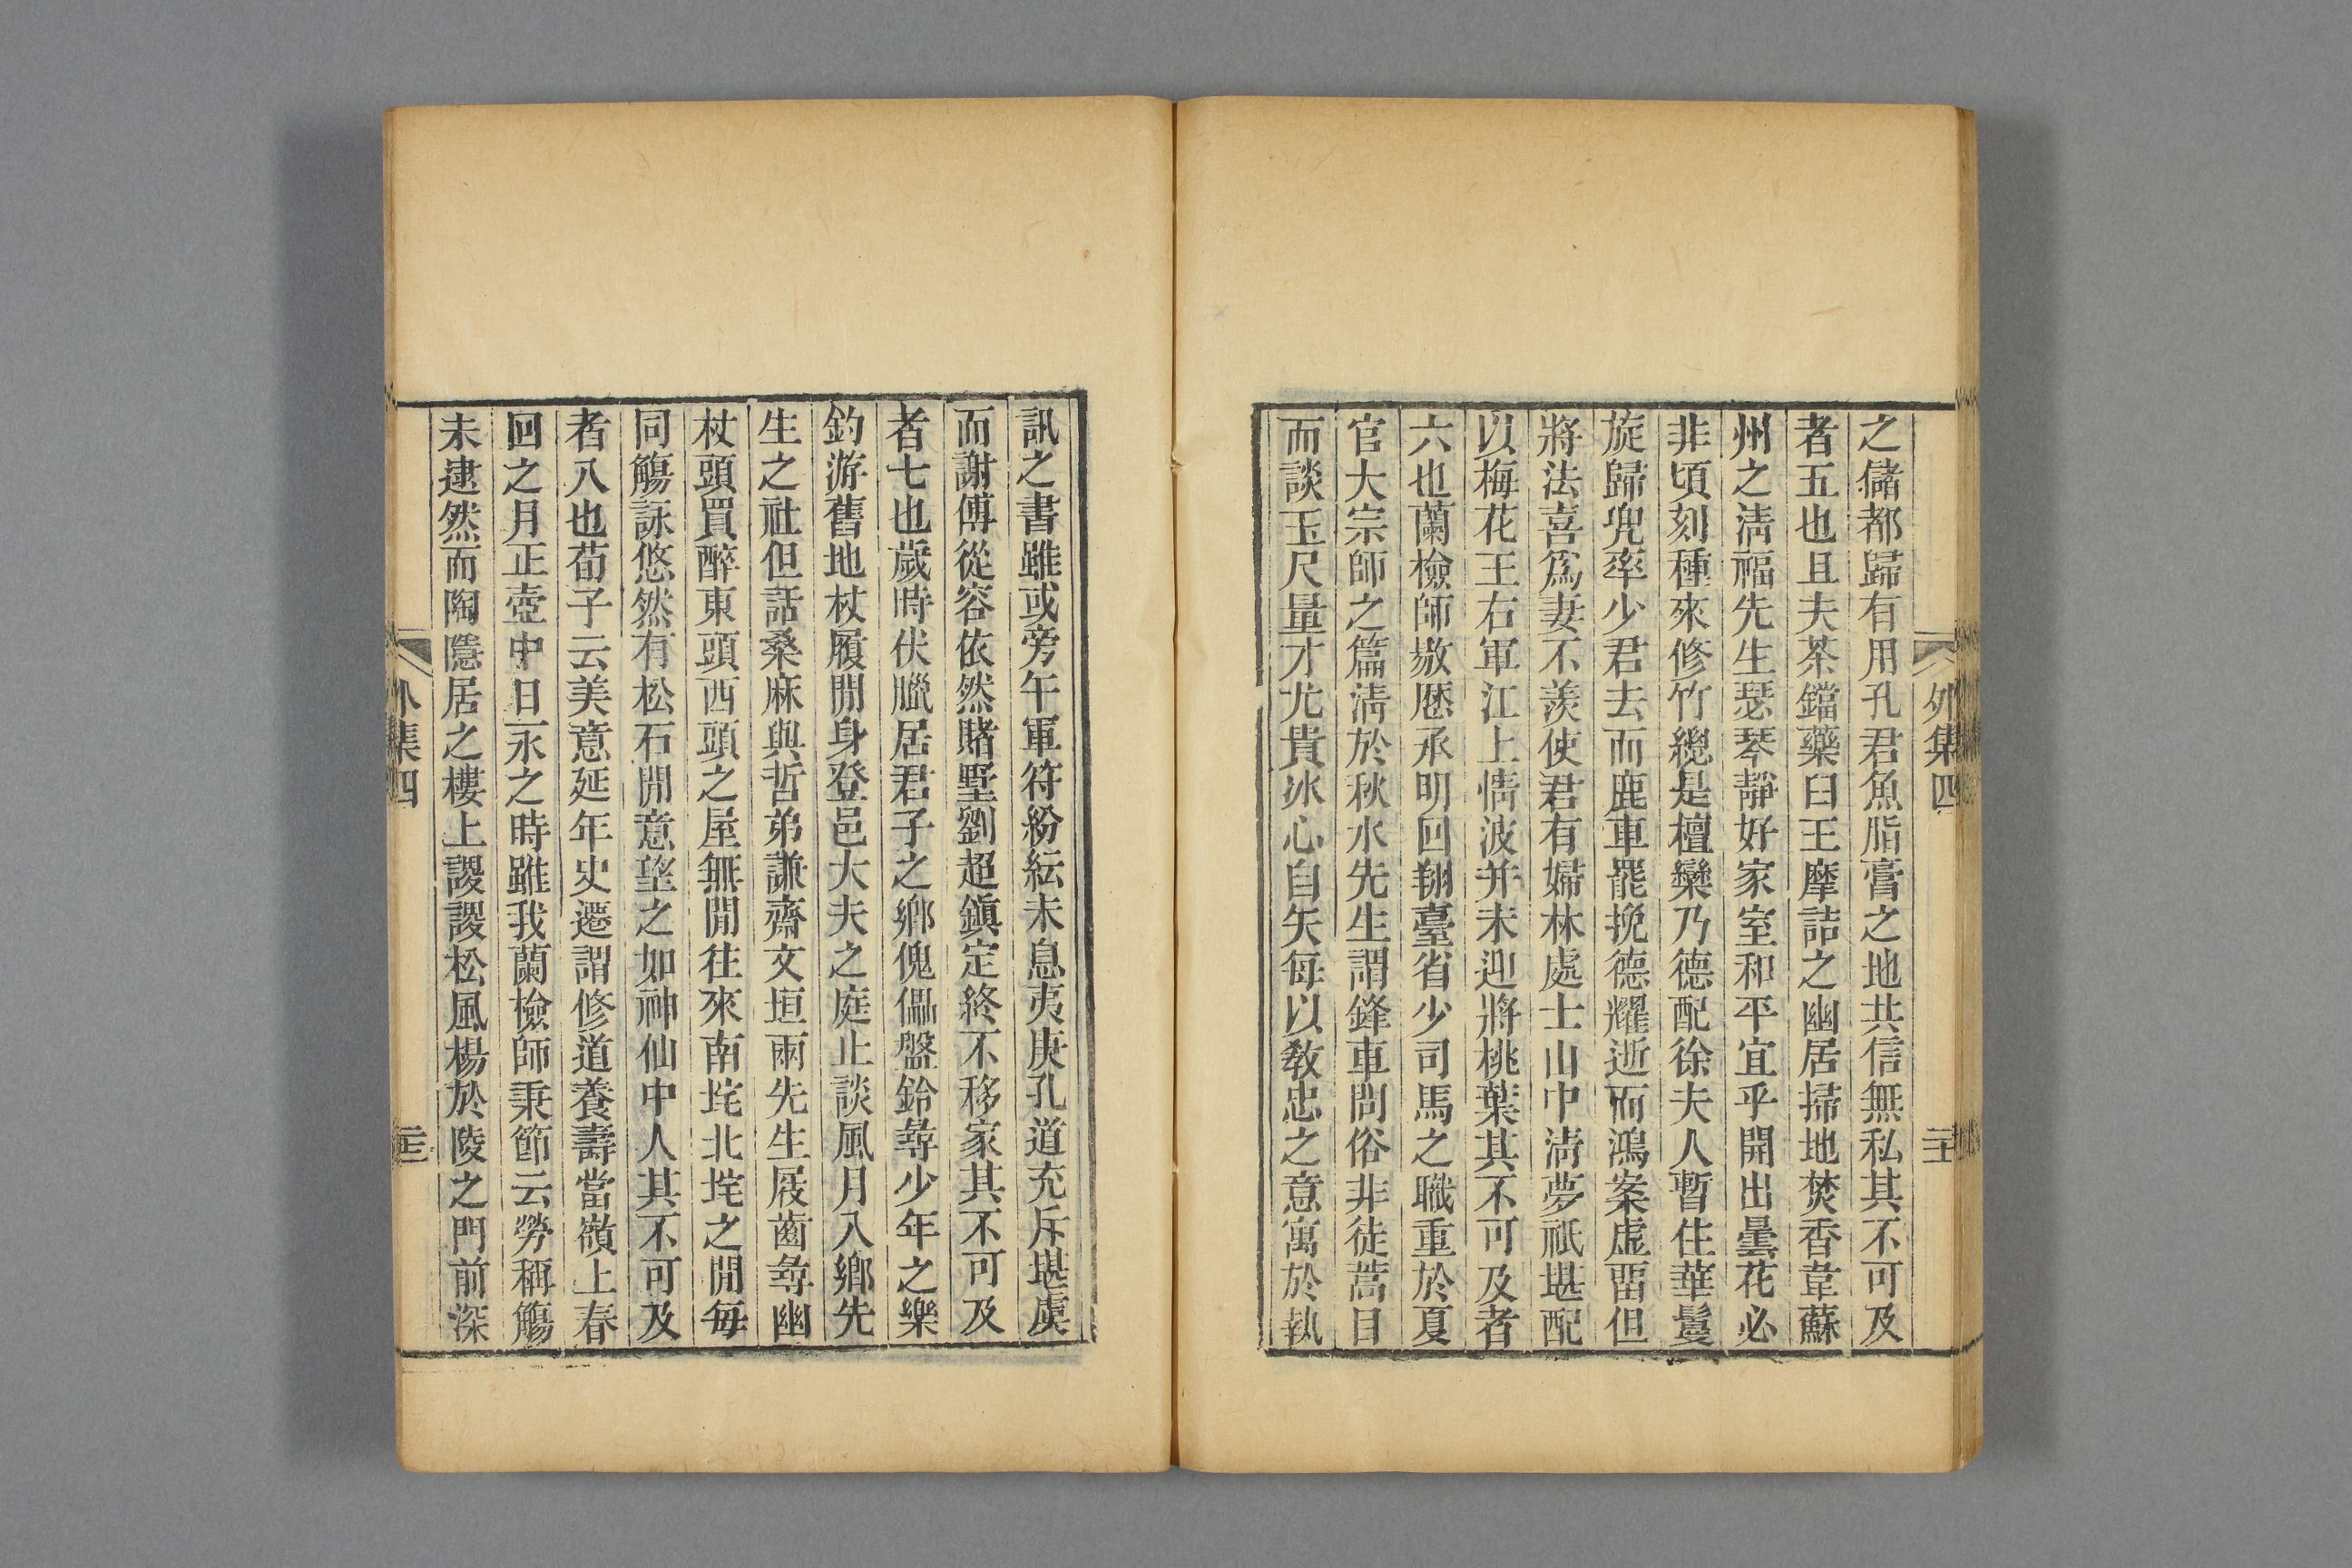 外集四
之儲都歸有用孔君魚脂膏之地共信無私其不可及
者五也且夫茶鐺藥臼王摩詰之幽居掃地焚香韋蘇
州之淸福先生瑟琴靜好家室和平宜乎開出曇花必
非頃刻種來修竹總是檀欒乃德配徐夫人暫住華鬘
旋歸兜率少君去而鹿車罷挽德耀逝而鴻案虛畱但
將法喜爲妻不羨使君有婦林處士山中淸夢祇堪配
以梅花王右軍江上情波并未迎將桃葉其不可及者
六也蘭檢師敭歷承明回翔臺省少司馬之職重於夏
官大宗師之篇淸於秋水先生謂鋒車問俗非徒蒿目
而談玉尺量才尤貴冰心自矢每以敎忠之意寓於執
訊之書雖或旁午軍符紛紜未息夷庚孔道充斥堪虞
而謝傅從容依然賭墅劉超鎭定終不移家其不可及
者七也歲時伏臘居君子之鄕傀儡盤鈴尋少年之樂
釣游舊地杖履閒身登邑大夫之庭止談風月入鄕先
生之社但話桑麻與哲弟謙齋文垣兩先生屐齒尋幽
杖頭買醉東頭西頭之屋無閒往來南垞北垞之閒每
同觴詠悠然有松石閒意望之如神仙中人其不可及
者八也荀子云美意延年史遷謂修道養壽當嶺上春
回之月正壺中日永之時雖我蘭檢師秉節云勞稱觴
未逮然而陶隱居之樓上謖謖松風楊於陵之門前深
外集四